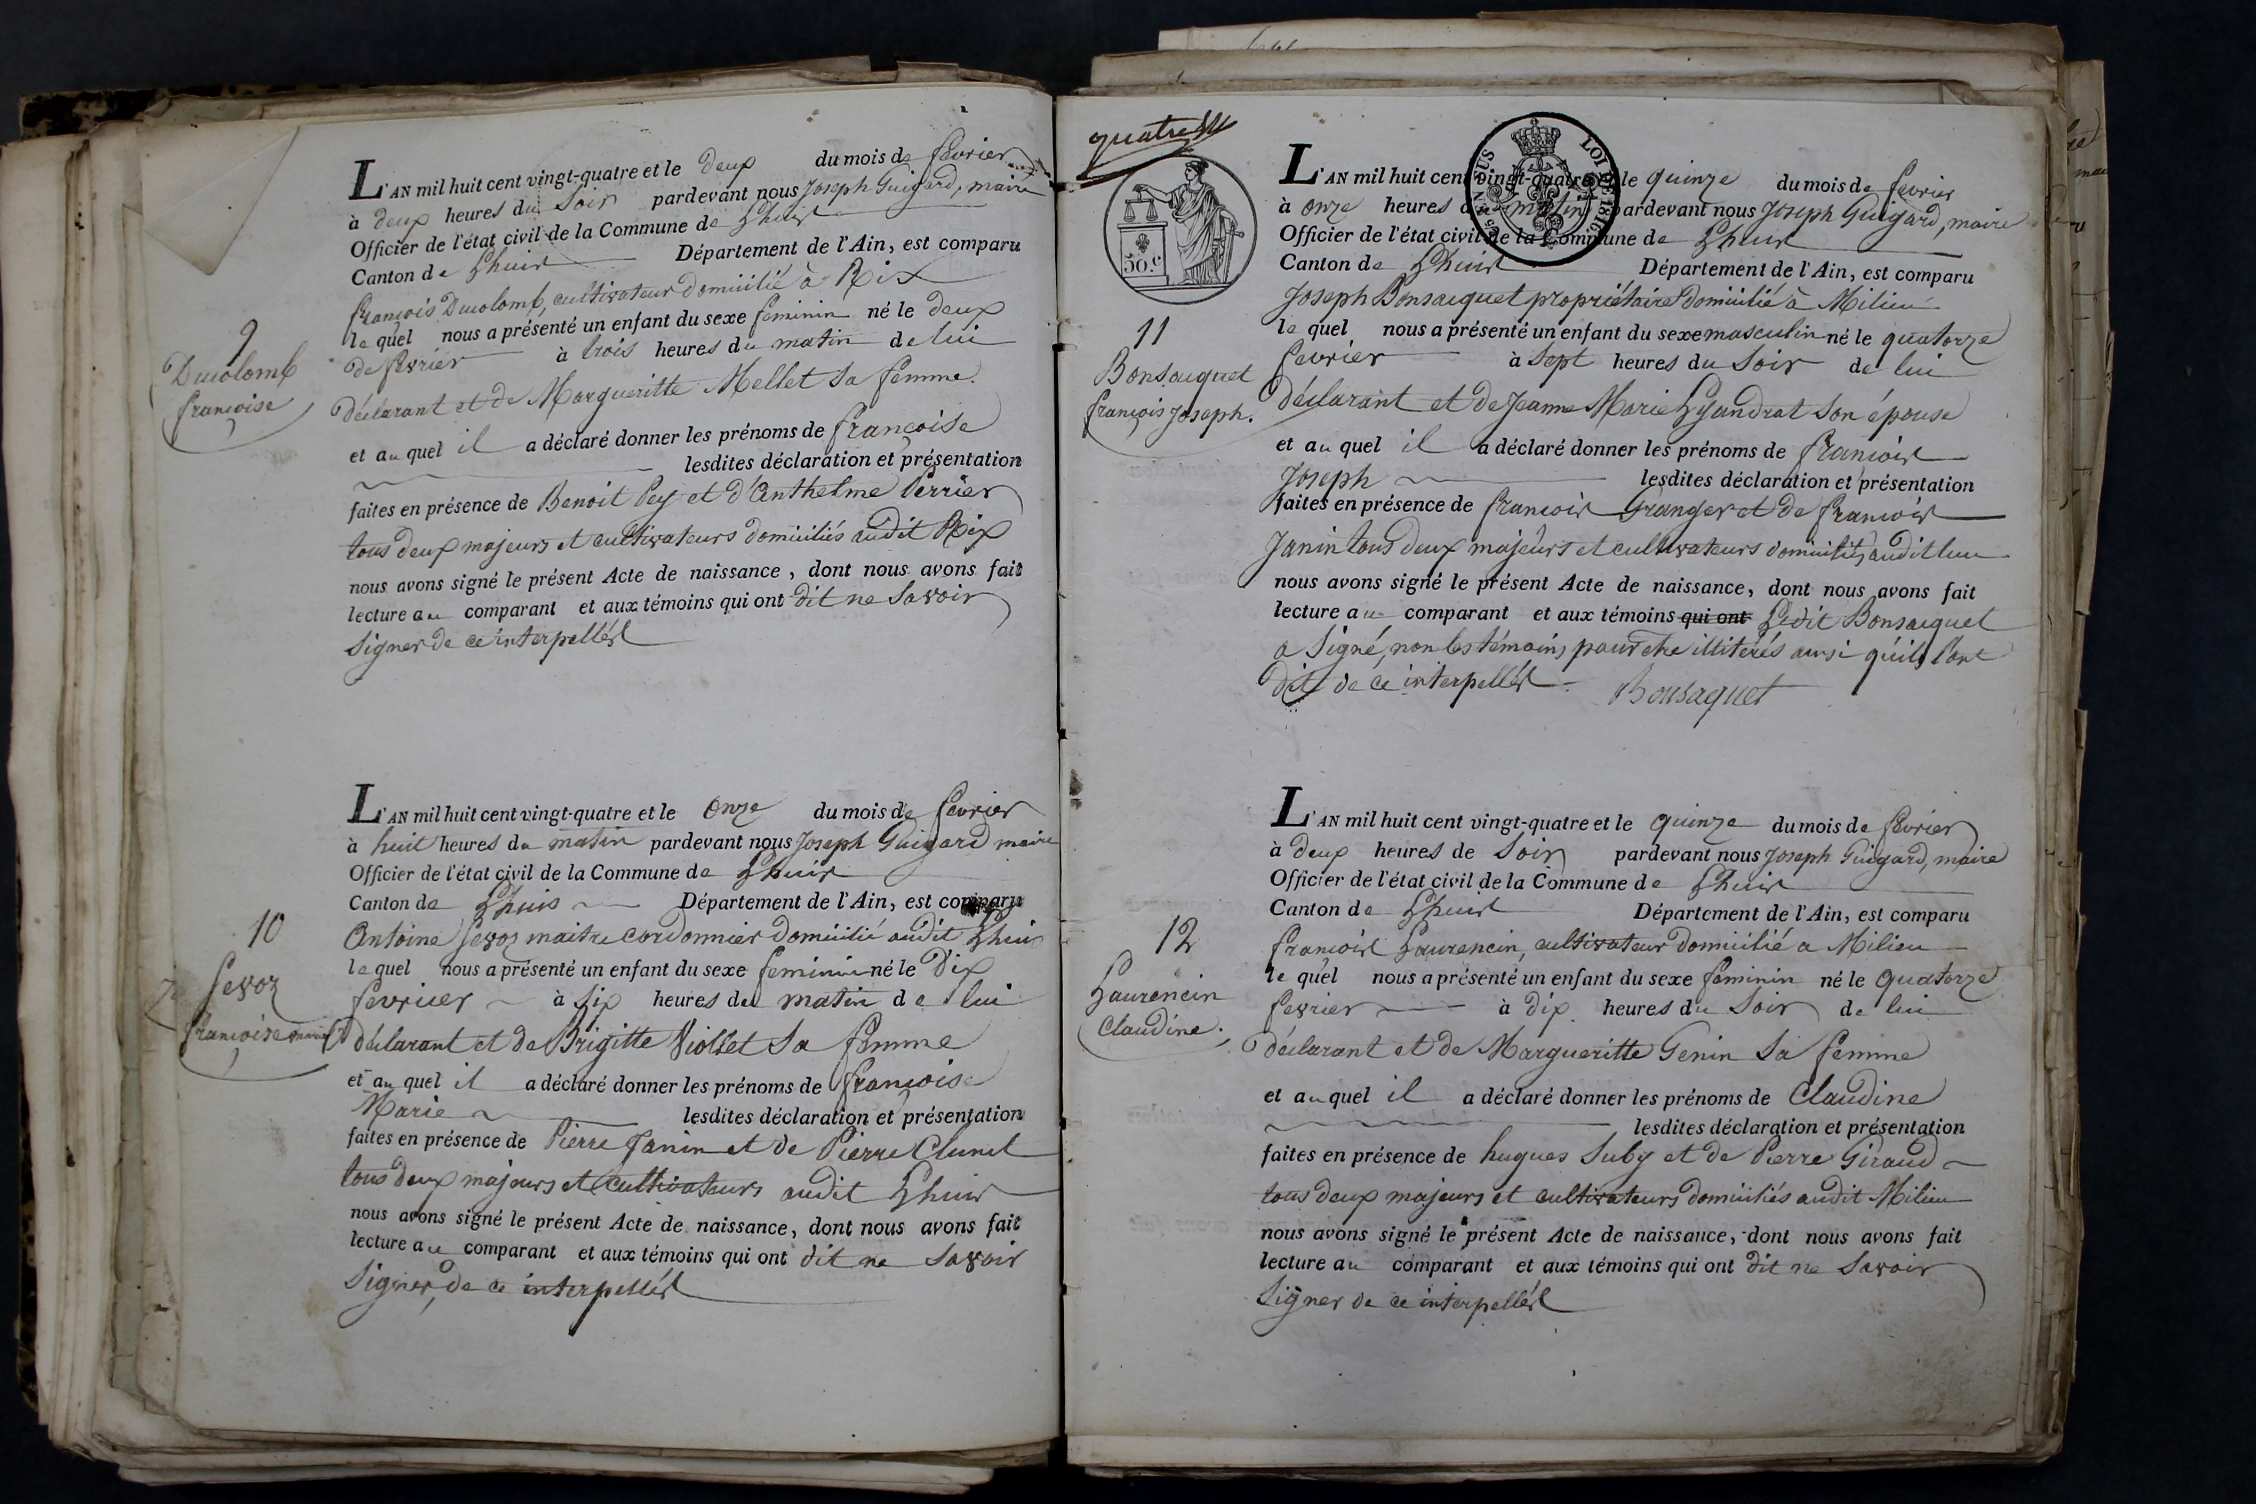 9
Ducolomb
françoise
L'AN mil huit cent vingt-quatre et le deux du mois de fevrier
à deux heures du Soir pardevant nous Joseph Guigard, maire
Officier de l'état civil de la Commune de Lhuis
Canton de Lhuis Département de l'Ain, est comparu
françois Ducolomb, cultivateur domicilié à Rix
le quel nous a présenté un enfant du sexe feminin né le deux
de fevrier à trois heures du matin de lui
déclarant et de Margueritte Mellet Sa femme.
et au quel il a déclaré donner les prénoms de françoise
lesdites déclaration et présentation
faites en présence de Benoit Pey et d'Anthelme Perrier
tous deux majeurs et cultivateurs domiciliés audit Rix
nous avons signé le présent Acte de naissance, dont nous avons fait
lecture au comparant et aux témoins qui ont dit ne Savoir
Signer de ce interpellés
10
françoise marie
L'AN mil huit cent vingt-quatre et le Onze du mois de fevrier
à huit heures du matin pardevant nous Joseph Guigard maire
Officier de l'état civil de la Commune de Lhuis
Canton de Lhuis Département de l'Ain, est comparu
Antoine maitre Cordonnier domicilié audit Lhuis
le quel nous a présenté un enfant du sexe feminin né le Dix
fevrier à Six heures du matin de lui
déclarant et de Brigitte Viollet Sa femme
et au quel il a déclaré donner les prénoms de françoise
Marie lesdites déclaration et présentation
faites en présence de Pierre Janin et de Pierre
tous deux majeurs et Cultivateurs audit Lhuis
nous avons signé le présent Acte de naissance, dont nous avons fait
lecture au comparant et aux témoins qui ont dit ne Savoir
Signer, de ce interpellés
quatre
50.c
LOI DE 1816
11
Bonsacquet
françois Joseph.
L'AN mil huit cent vingt-quatre et le quinze du mois de fevrier
à onze heures du matin pardevant nous Joseph Guigard, maire
Officier de l'état civil de la Commune de Lhuis
Canton de Lhuis Département de l'Ain, est comparu
Joseph Bonsacquet propriétaire domicilié à Milieu
le quel nous a présenté un enfant du sexe masculin né le quatorze
fevrier à Sept heures du Soir de lui
déclarant et de Jeanne Marie Lyandrat Son épouse
et au quel il a déclaré donner les prénoms de françois
Joseph lesdites déclaration et présentation
faites en présence de françois Granger et de françois
Janin tous deux majeurs et cultivateurs domiciliés audit lieu
nous avons signé le présent Acte de naissance, dont nous avons fait
lecture au comparant et aux témoins qui ont Ledit Bonsacquet
a Signé, non les témoins pour etre illiterés ainsi qu'ils l'ont
dit de ce interpellés. Bonsaquet
12
Laurencin
Claudine.
L'AN mil huit cent vingt-quatre et le quinze du mois de fevrier
à deux heures de Soir pardevant nous Joseph Guigard, maire
Officier de l'état civil de la Commune de Lhuis
Canton de Lhuis Département de l'Ain, est comparu
françois Laurencin, cultivateur domicilié a Milieu
le quel nous a présenté un enfant du sexe feminin né le quatorze
fevrier à dix heures du Soir de lui
déclarant et de Margueritte Genin Sa femme
et au quel il a déclaré donner les prénoms de Claudine
lesdites déclaration et présentation
faites en présence de hugues Suby et de Pierre Giraud
tous deux majeurs et cultivateurs domiciliés audit Milieu
nous avons signé le présent Acte de naissance, dont nous avons fait
lecture au comparant et aux témoins qui ont dit ne Savoir
Signer de ce interpellés